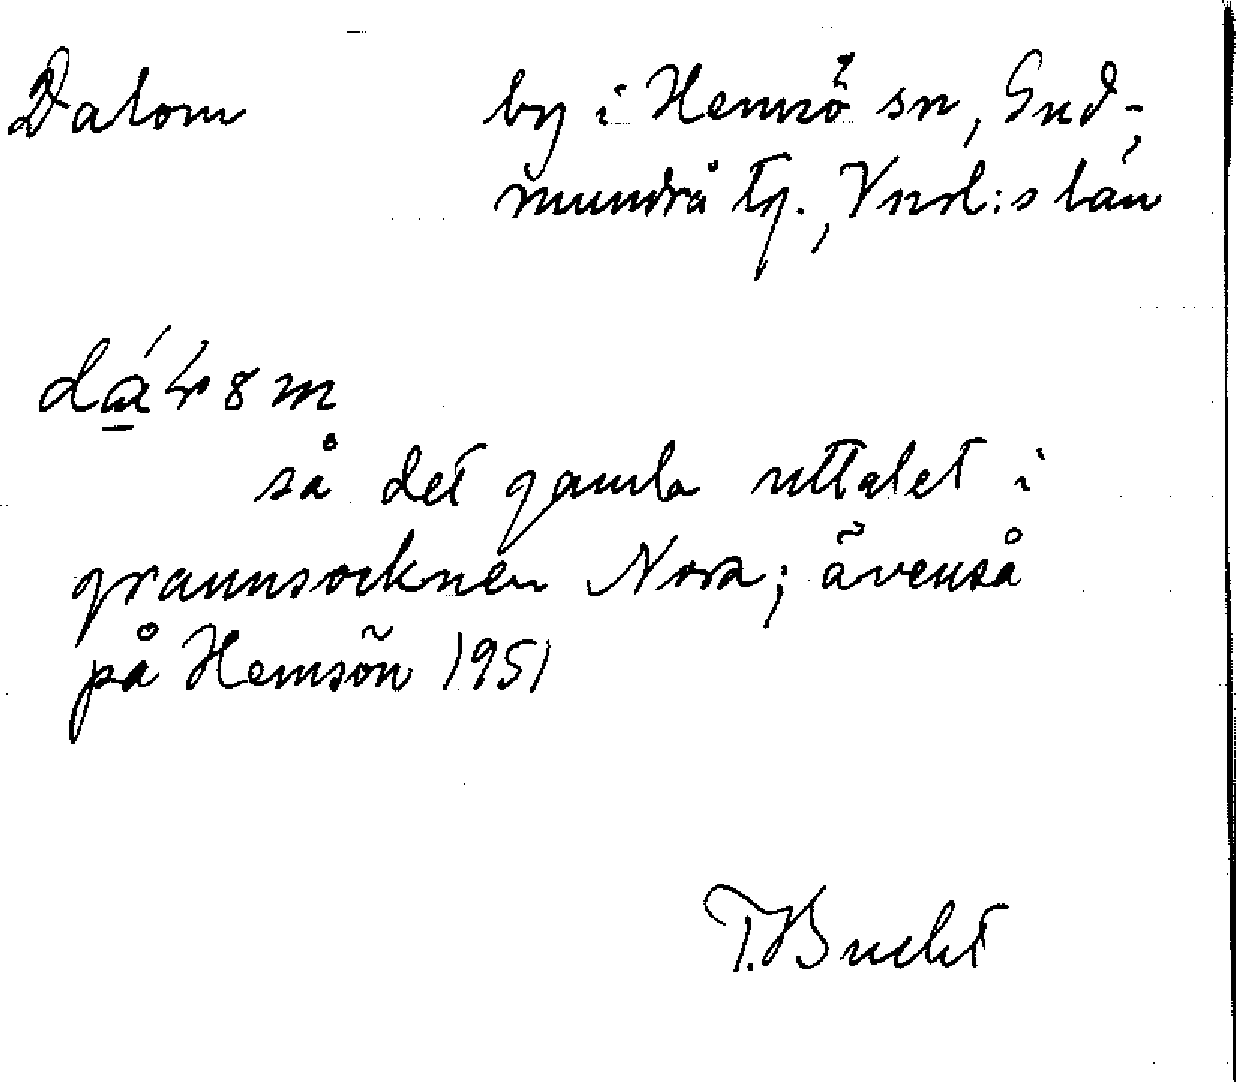 Dalom by i Hemsö sn, Gud-
mundrå tg., Vnrl:s län
så det gamla uttalet i
grannsocknen Nora; ävenså
på Hemsön 1951
T. Bucht